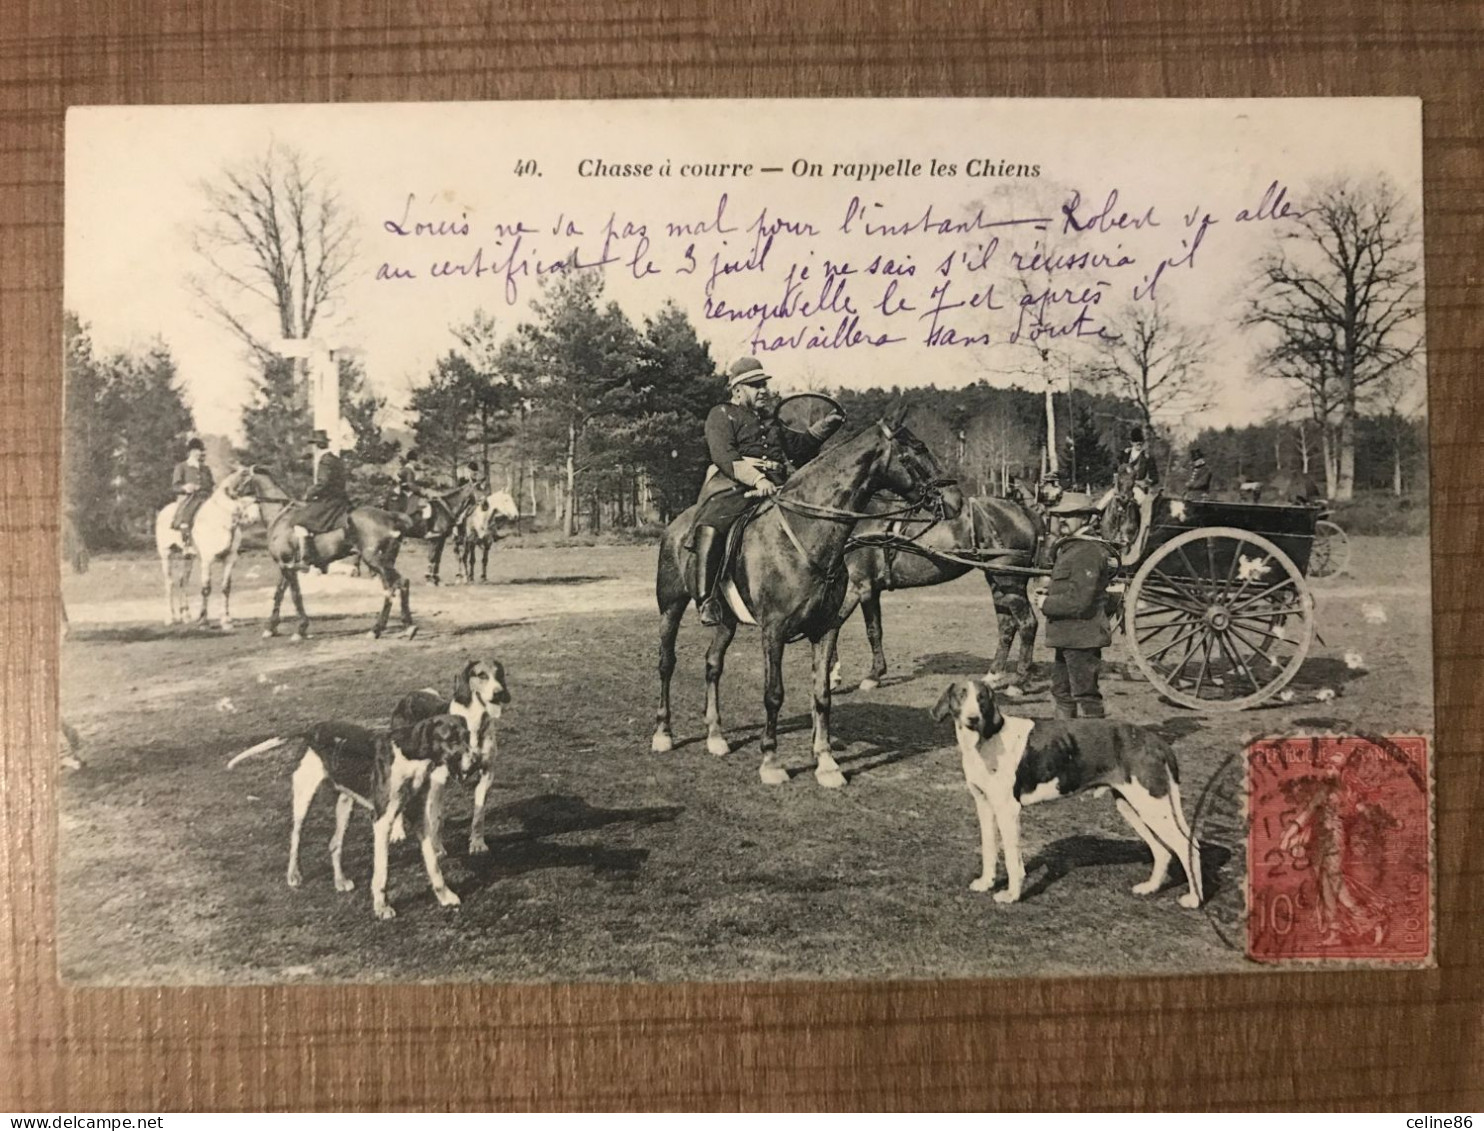 40. Chasse à courre — On rappelle les Chiens
Louis ne va pas mal pour l'instant = Robert va aller
au certificat le 3 juil je ne sais s'il réussira il
renouvelle le 7 et après il
travaillera sans doute
REPUBLIQUE FRANCAISE
15
28
10c
POSTES
celine86